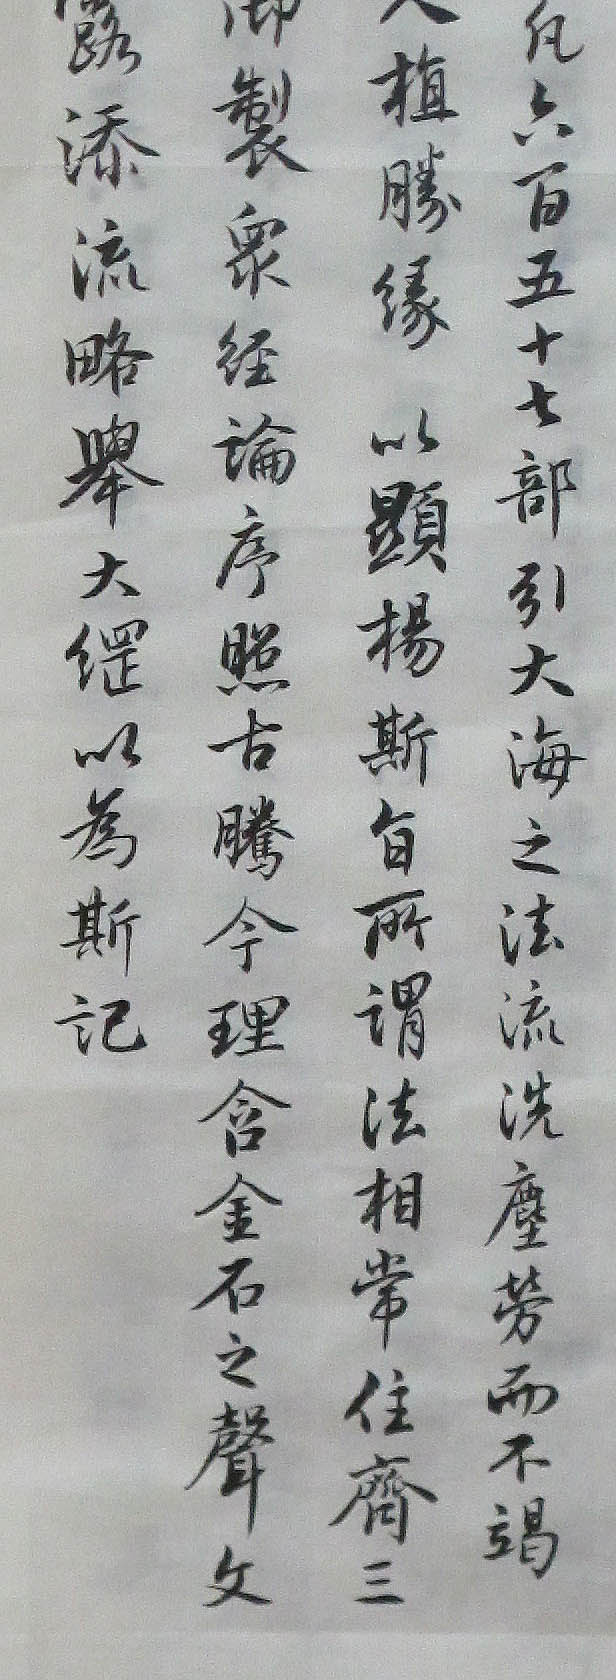 凡六百五十七部引大海之法流洗塵勞而不竭
人植勝緣以顯楊斯旨所謂法相常住齊三
御製眾經論序照古騰今理含金石之聲文
露添流略舉大綱以為斯記